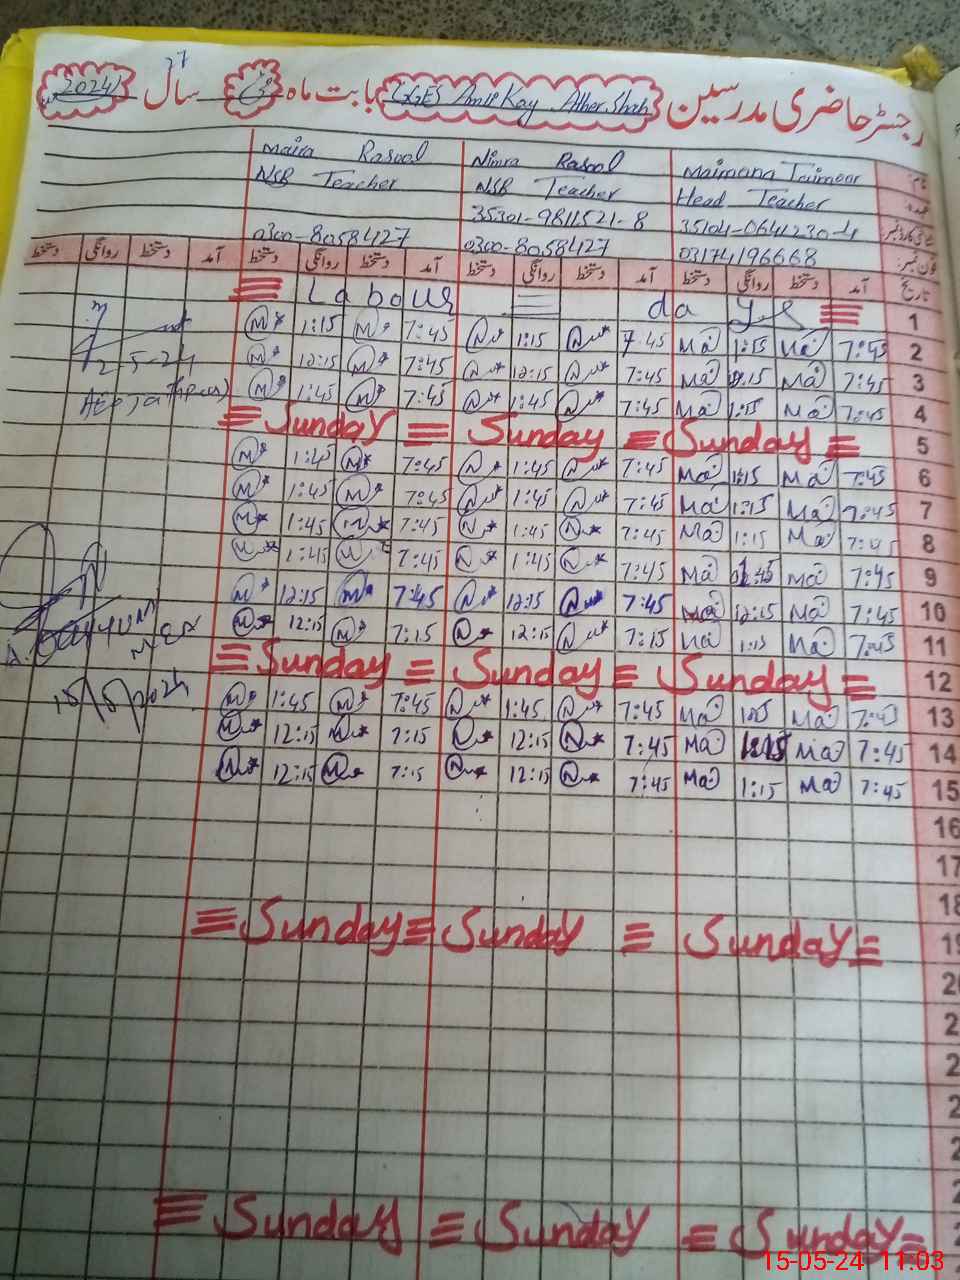 رجسٹر حاضری مدرسین GGES Amir Kay Ather Shah بابت ماہ مئی سال 2024
نام Maimona Taimoor Nimra Rasool Maira Rasool
عہدہ Head Teacher NSB Teacher NSB Teacher
35104-0641230-4 35301-9811521-8
فون نمبر 03174196668 0300-8058427 0300-8058427
تاریخ آمد دستخط روانگی دستخط آمد دستخط روانگی دستخط آمد دستخط روانگی دستخط آمد دستخط روانگی دستخط
1 Labour day
2 7:45 Ma 1:15 Ma 7:45 1:15 7:45 M 1:15 M
3 7:45 Ma Ma 7:45 12:15 7:45 M 12:15 M
4 7:45 Ma 1:15 Ma 7:45 1:45 7:45 M 1:45 M
5 Sunday Sunday Sunday
6 7:45 Ma 1:15 Ma 7:45 1:45 7:45 M 1:45 M
7 7:45 Ma 1:15 Ma 7:45 1:45 7:45 M 1:45 M
8 7:45 Ma 1:15 Ma 7:45 1:45 7:45 M 1:45 M
9 7:45 Ma Ma 7:45 1:45 7:45 M 1:45 M
10 7:45 Ma 12:15 Ma 7:45 12:15 7:45 M 12:15 M
11 7:45 Ma 1:15 Ma 7:15 12:15 7:15 M 12:15 M
12 Sunday Sunday Sunday
13 7:45 Ma Ma 7:45 1:45 7:45 M 1:45 M
14 7:45 Ma Ma 7:45 12:15 7:15 M 12:15 M
15 7:45 Ma 1:15 Ma 7:45 12:15 7:15 M 12:15 M
16
17
18
19 Sunday Sunday Sunday
2-5-24
15/5/2024
Sunday Sunday Sunday
15-05-24 11:03